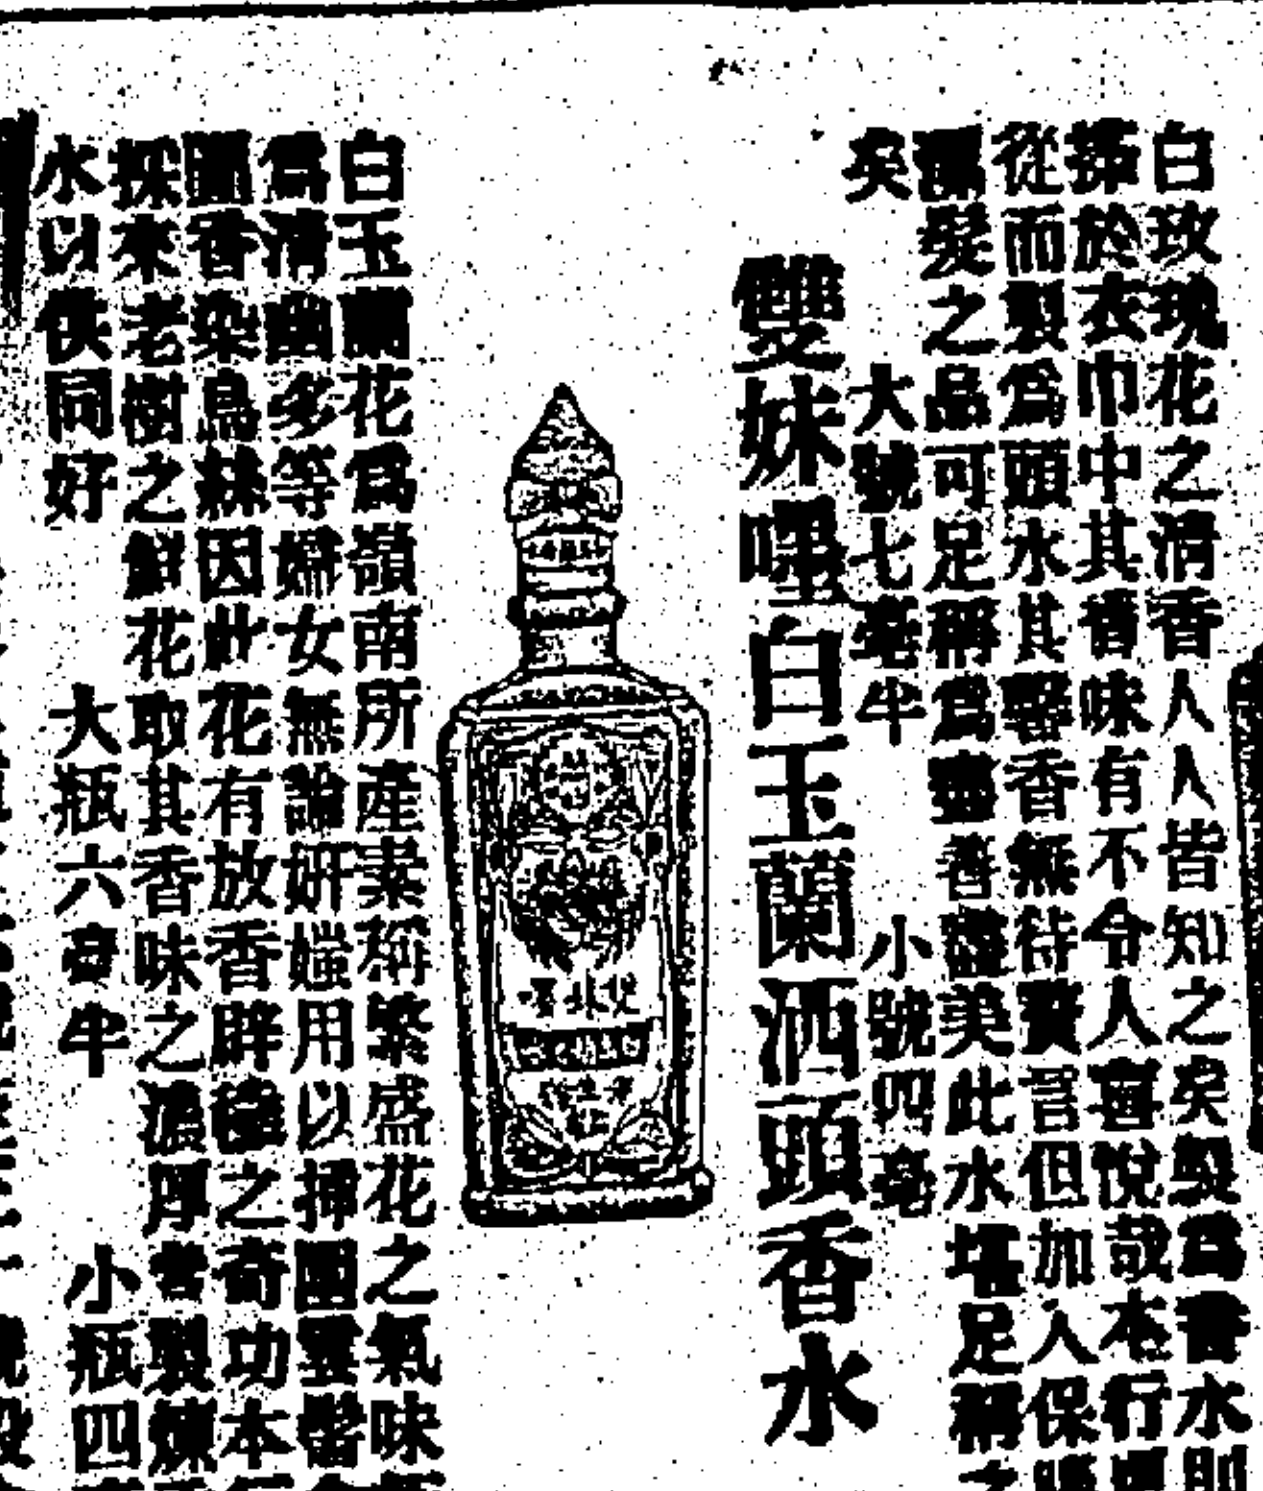 白玫瑰花之清香人人皆知之矣製為香水則
搽於衣巾中其香味有不令人喜悅哉本行
從而製為頭水其馨香無待贅言但加入保
髮之品可足稱為盡善盡美此水堪足稱之
矣 大號七毫半 小號四毫
雙妹嚜白玉蘭洒頭香水
白玉蘭花為嶺南所產素稱繁盛花之氣味
為清幽多等婦女無論妍媸用以掃團雲髻
香染烏絲因此花有放香辟穢之奇功本行
採來老樹之鮮花取其香味之濃厚者製煉
水以供同好 大瓶六毫半 小瓶四